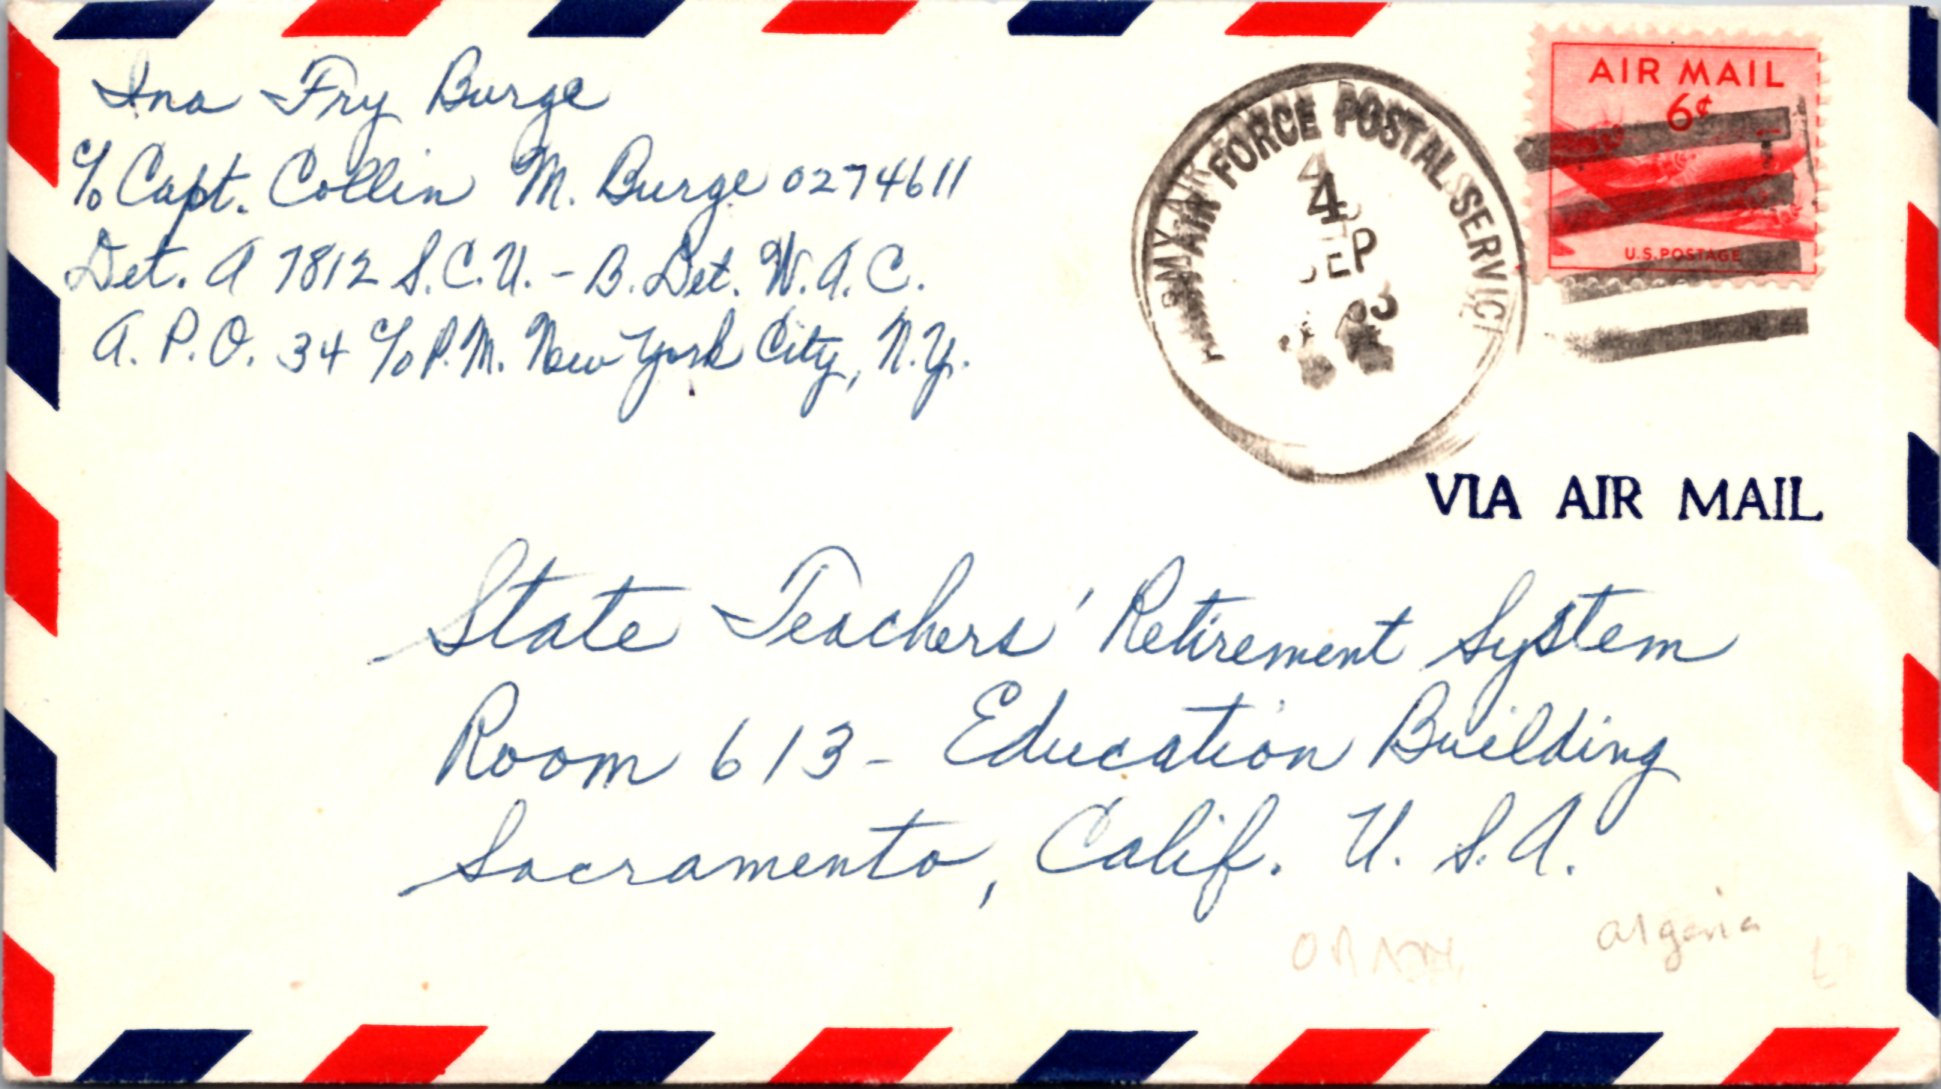 Ina Fry Burge
c/o Capt. Collin M. Burge 0274611
Det. A 7812 S.C.U. - B. Det. W.A.C.
A. P. O. 34 c/o P.M. New York City, N.Y.
ARMY-AIR FORCE POSTAL SERVICE
4
SEP
AIR MAIL
6¢
U.S. POSTAGE
VIA AIR MAIL
State Teachers' Retirement System
Room 613 - Education Building
Sacramento, Calif. U. S. A.
algeria